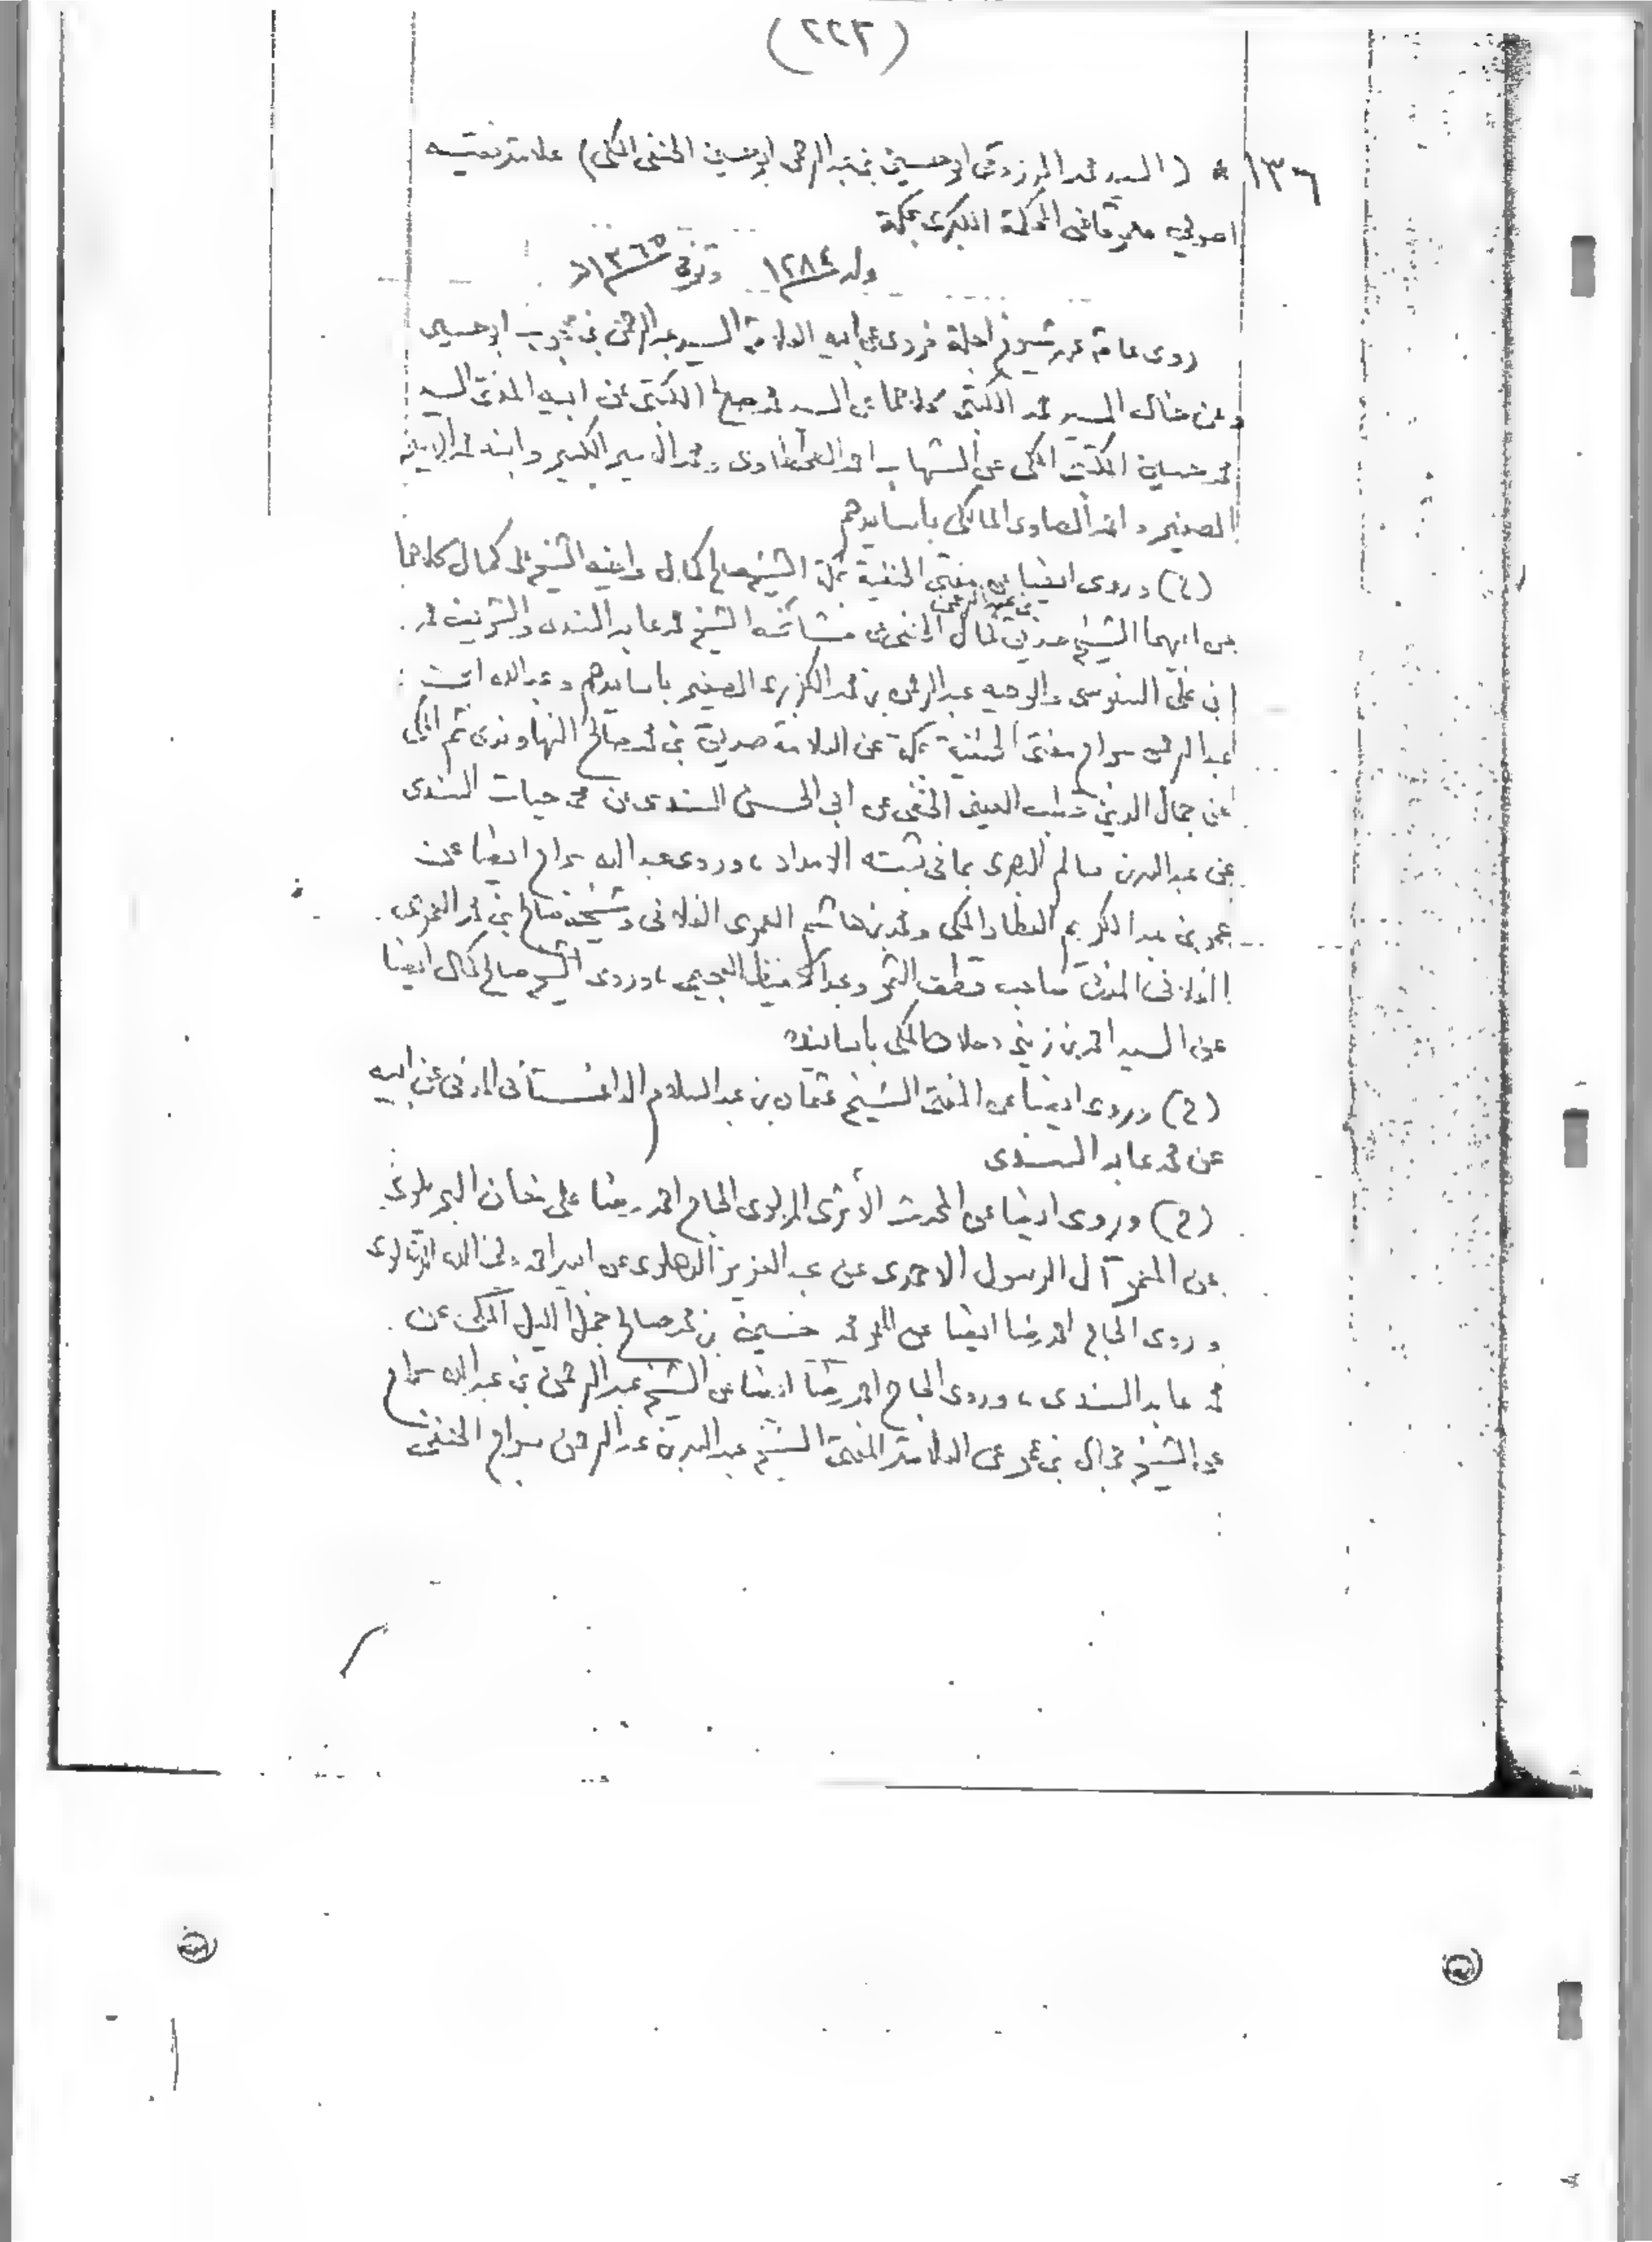 (٢٢٣)
١٣٦ * (السيد محمد المرزوقي ابو حسين بن عبد الرحمن ابو حسين الحنفي المكي) علامة فقيه
اصولي قاضي المحكمة الكبرى بمكة
ولد ١٢٨٤ وتوفى ١٣٦٥ه
روى عاليا عن شيوخ اجلة فروى عن ابيه العلامة السيد عبد الرحمن بن محجوب ابو حسين
وعن خاله السيد محمد الكتبي كلاهما عن السيد محمد صالح الكتبي عن ابيه المفتي السيد
محمد حسين الكتبي المكي عن الشهاب احمد الطحطاوى ومحمد الامير الكبير وابنه محمد الامير
الصغير واحمد الصاوى المالكي باسانيدهم
(٢) وروى ايضا عن مفتي الحنفية بمكة الشيخ صالح كمال واخيه الشيخ علي كمال كلاهما
عن ابيهما الشيخ صديق بن عبد الرحمن كمال الحنفي عن مشائخه الشيخ محمد عابد السندى والشريف محمد
ابن علي السنوسي والوجيه عبد الرحمن بن محمد الكزبرى الصغير باسانيدهم وعبد الله ابن
عبد الرحمن سراج مفتي الحنفية بمكة عن العلامة صديق بن محمد صالح النهاوندى ثم المكي
عن جمال الدين قطب العيني الحنفي عن ابي الحسن السندى عن محمد حيات السندى
عن عبد الله بن سالم البصرى بما في ثبته الامداد ، وروى عبد الله سراج ايضا عن
عمر بن عبد الكريم العطار المكي ومحمد بن هاشم العمرى الفلاني وشيخه صالح بن محمد العمرى
الفلاني المدني صاحب قطف الثمر وعبد الحفيظ العجيمي ، وروى الشيخ صالح كمال ايضا
عن السيد احمد بن زيني دحلان المكي باسانيده
(٢) وروى ايضا عن المفتي الشيخ عثمان بن عبد السلام الداغستاني المدني عن ابيه
عن محمد عابد السندى
(٢) وروى ايضا عن المحدث الأثرى الحاج احمد رضا علي خان البريلوي
عن آل الرسول الاحمدى عن عبد العزيز الدهلوى عن ابيه احمد ولي الله الدهلوى
وروى الحاج احمد رضا ايضا عن حسين بن محمد صالح جمل الليل المكي عن
محمد عابد السندى ، وروى الحاج احمد رضا ايضا عن الشيخ عبد الرحمن بن عبد الله سراج
عن الشيخ جمال بن عمر عن العلامة المفتي الشيخ عبد الله بن عبد الرحمن سراج الحنفي